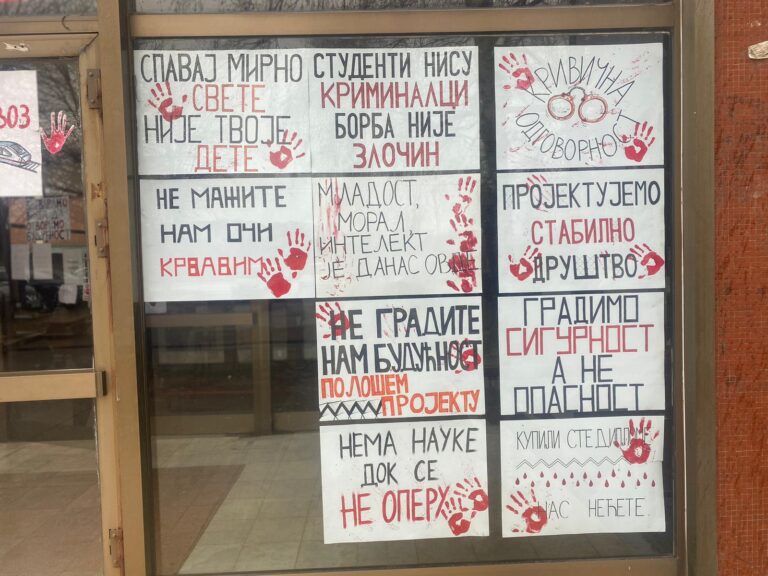 СПАВАЈ МИРНО
СВЕТЕ
НИЈЕ ТВОЈЕ
ДЕТЕ
СТУДЕНТИ НИСУ
КРИМИНАЛЦИ
БОРБА НИЈЕ
ЗЛОЧИН
КРИВИЧНА
ОДГОВОРНОСТ
ВОЗ
НЕ МАЖИТЕ
НАМ ОЧИ
КРВАВИМ
МЛАДОСТ,
МОРАЛ,
ИНТЕЛЕКТ
ЈЕ ДАНАС ОВДЕ
ПРОЈЕКТУЈЕМО
СТАБИЛНО
ДРУШТВО
НЕ ГРАДИТЕ
НАМ БУДУЋНОСТ
ПО ЛОШЕМ
ПРОЈЕКТУ
ГРАДИМО
СИГУРНОСТ
А НЕ
ОПАСНОСТ
НЕМА НАУКЕ
ДОК СЕ
НЕ ОПЕРУ
КУПИЛИ СТЕ ДИПЛОМЕ
НАС НЕЋЕТЕ.